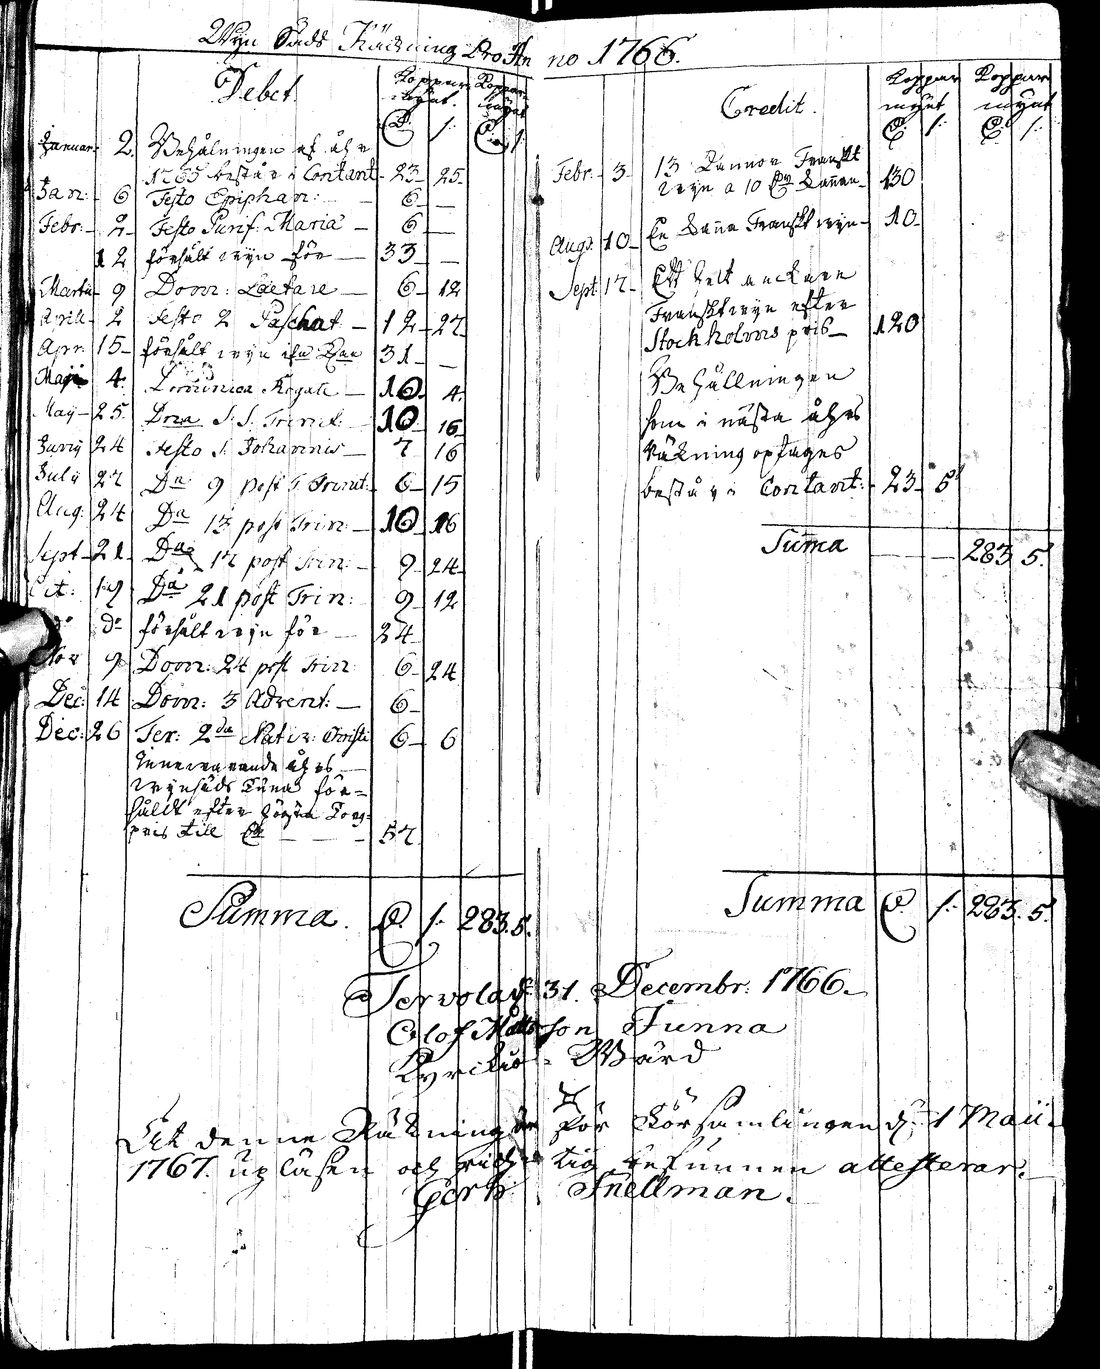 Wyn Sads Räckning Pro An no 1766.
Debet. Koppar mynt. Koppar mynt
Januar. 2. Behålningen af åhr
1765 består i Contant 23 25
Jan: 6 Festo Epiphan: 6
Febr: 2 Festo Purif: Mariæ 6
12 försålt wyn för 33
Martii 9 Dom: Lætare 6 12
April 2 Festo 2 Paschat 12 27
Apr: 15 försålt wyn 31
Maji 4. Dominica Rogate 10 4
May 25 Dnca S: S: Trinit: 10 16
Juny 24 Festo S. Johannis 7 16
July 27 Da 9 post T Trinit: 6 15
Aug: 24 Da 13 post Trin: 10 16
Sept 21 Da 17 post Trin: 9 24
Oct: 19 Da 21 post Trin: 9 12
do do försålt wyn för 24
Nov 9 Dom: 24 post Trin: 6 24
Dec: 14 Dom: 3 Advent: 6
Dec: 26 Fer: 2da Nativ: Christi 6 6
Innevarande åhrs
wynsäds Tuna för=
såldt efter
pris till 57
Summa. 283. 5.
Credit. Koppar mynt Koppar mynt
Febr: 3 13 Kannor Franskt
wyn a 10 Kannan 130
Augs. 10 En Kanna Franskt wyn 10
Sept: 17 Ett helt anckare
Franskt wyn efter
Stockholms pris 120
Behållningen
som i nästa åhrs
Räkning optages
består i Contant: 23 5
Summa 283 5.
Summa 283. 5.
Tervola d. 31. Decembr: 1766.
Olof Mattsson Junna
Kyrckio Wärd
At denne Räkning är för Församlingen d: 1 Maii
1767. upläsen och richtig befunnen attesterar.
Snellman.